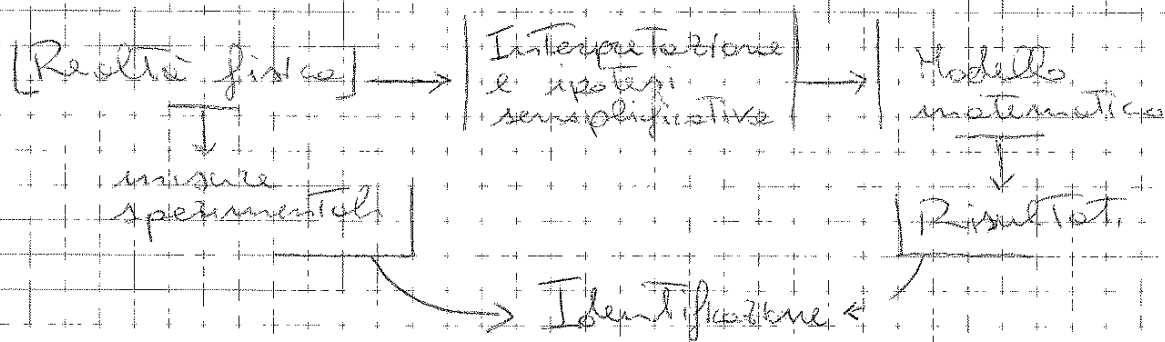 [Realtà fisica]
Interpretazione
e ipotesi
semplificative
Modello
matematico
misure
sperimentali
Risultati
Identificazione